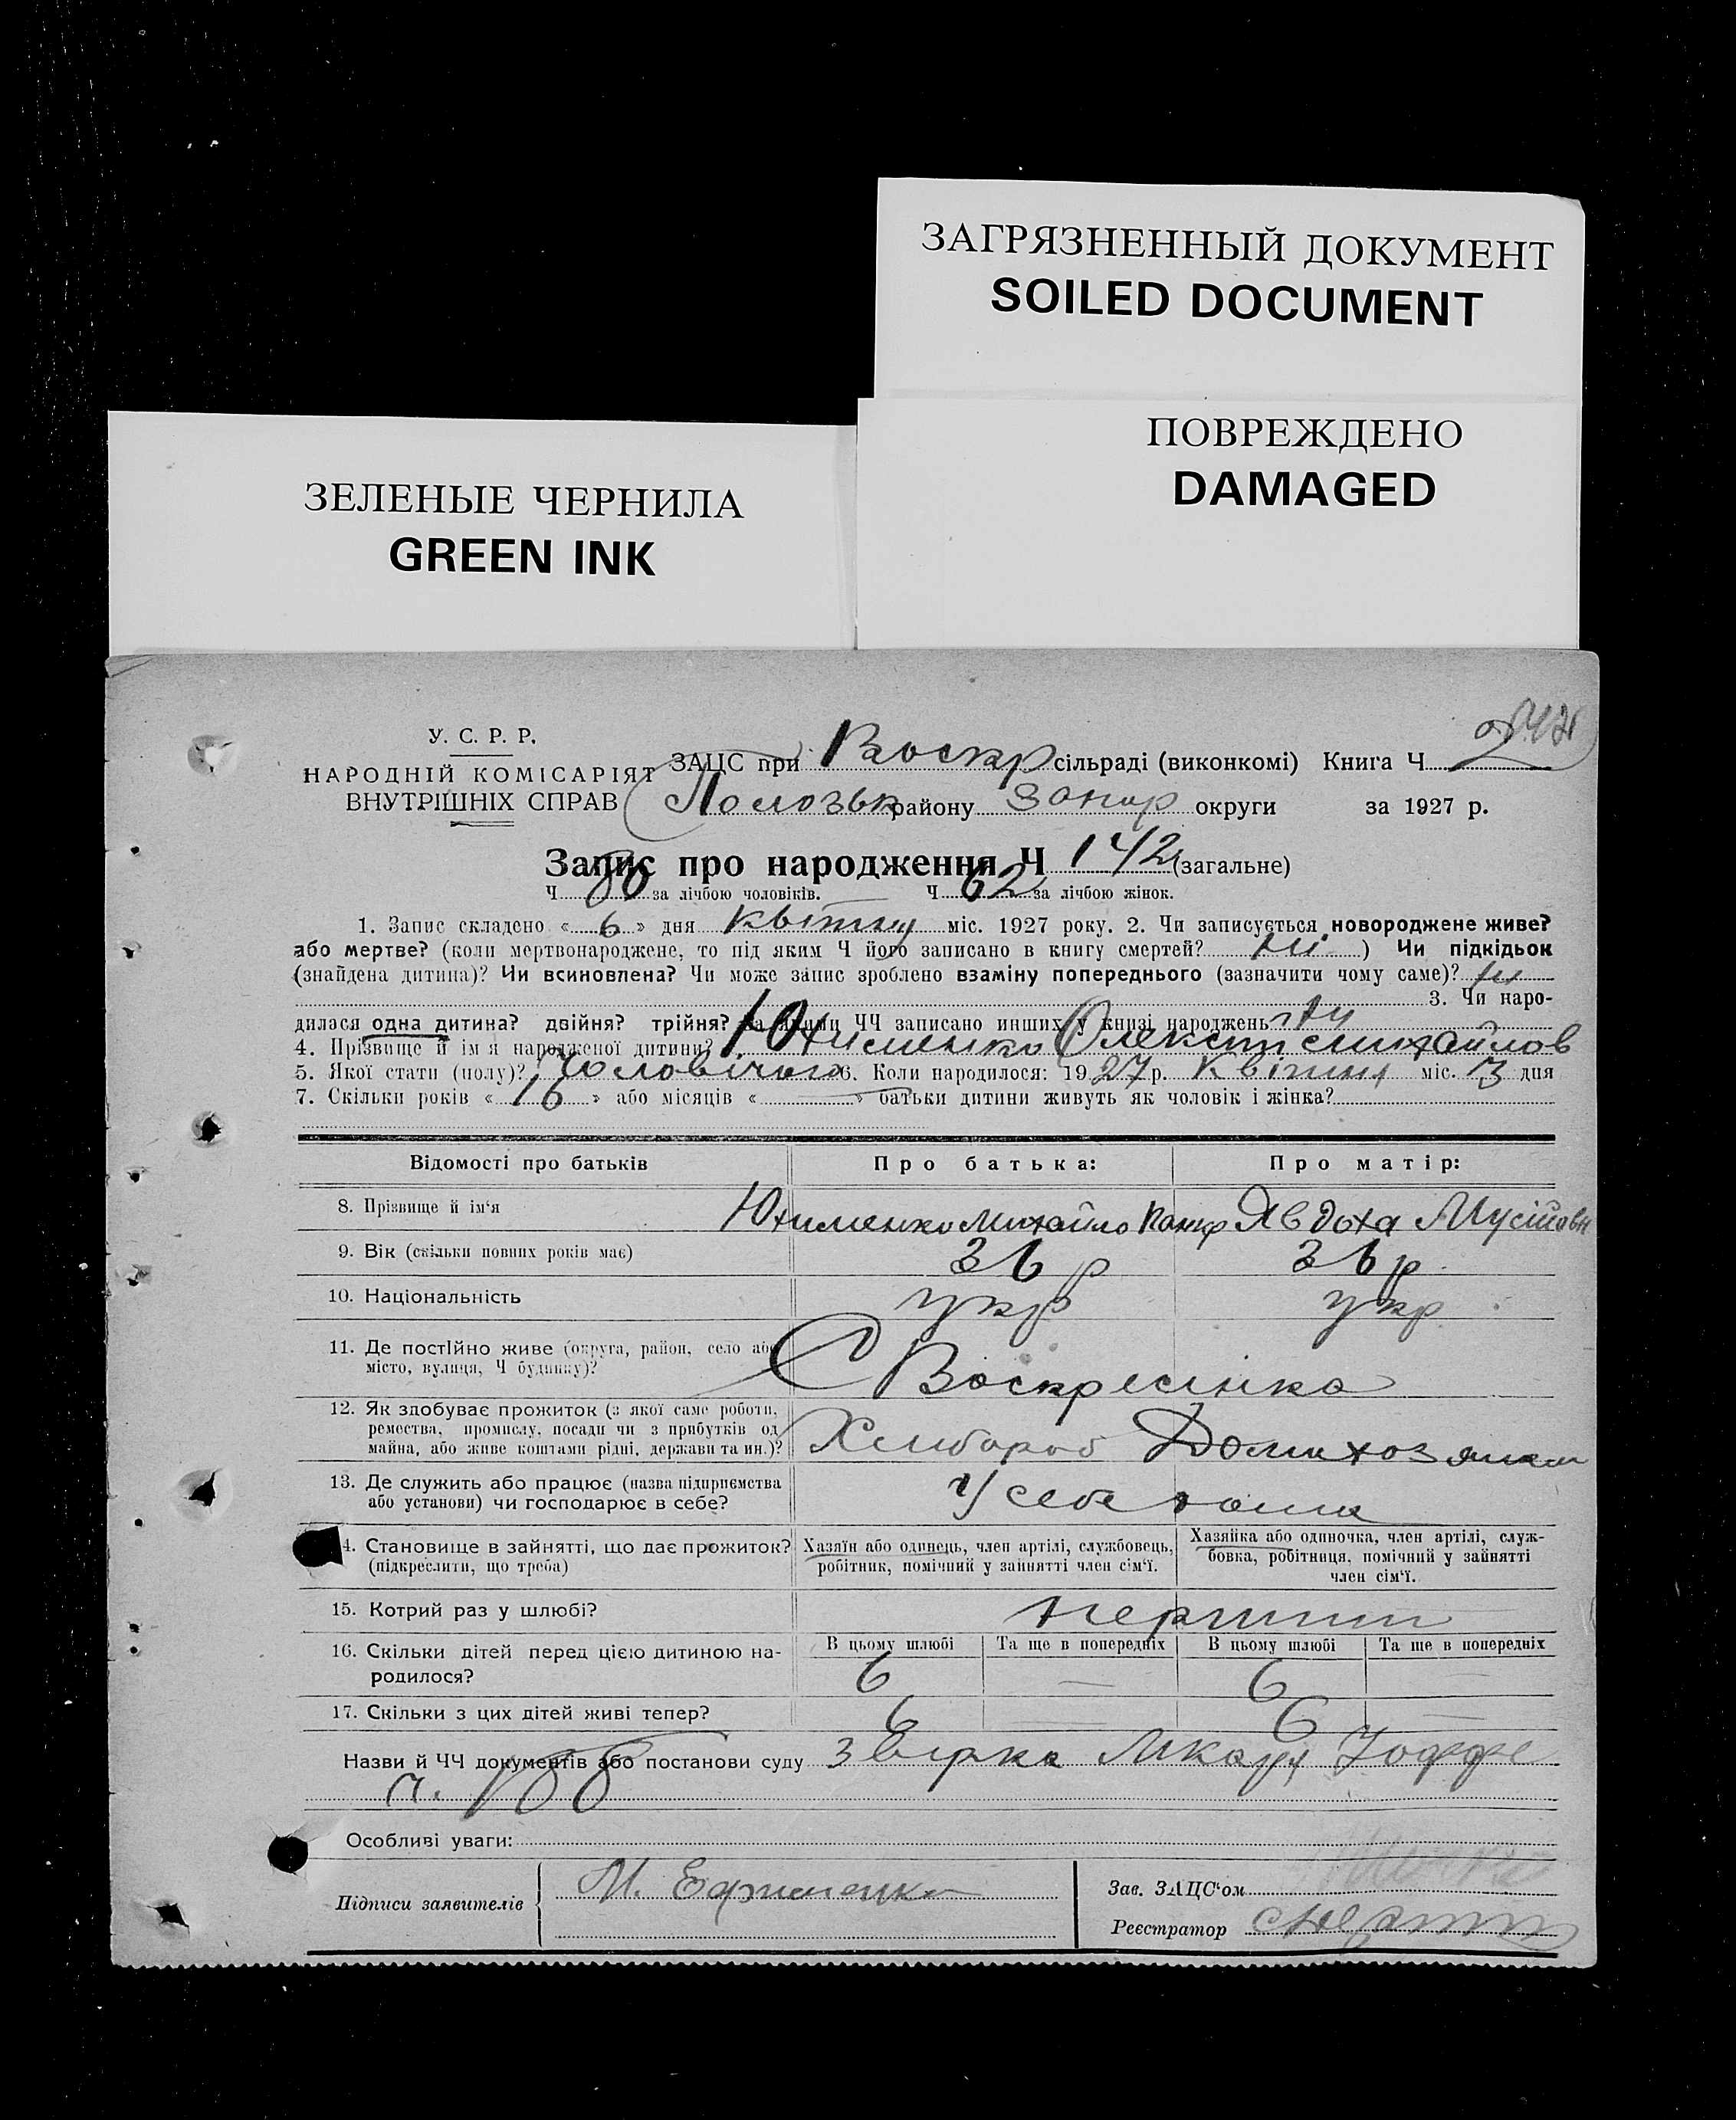 ЗАГРЯЗНЕННЫЙ ДОКУМЕНТ
SOILED DOCUMENT
ПОВРЕЖДЕНО
DAMAGED
ЗЕЛЕНЫЕ ЧЕРНИЛА
GREEN INK
У. С. Р. Р.
НАРОДНІЙ КОМІСАРІЯТ
ВНУТРІШНІХ СПРАВ
ЗАЦС при Воскр сільраді (виконкомі) Книга Ч 2
району Запор округи за 1927 р.
Запис про народження Ч 142 (загальне)
Ч 80 за лічбою чоловіків. Ч 62 за лічбою жінок.
1. Запис складено « 6 » дня квітня міс. 1927 року. 2. Чи записується новороджене живе?
або мертве? (коли мертвонароджене, то під яким Ч його записано в книгу смертей? ні ) Чи підкідьок
(знайдена дитина)? Чи всиновлена? Чи може запис зроблено взаміну попереднього (зазначити чому саме)? ні
3. Чи наро-
дилася одна дитина? двійня? трійня? За якими ЧЧ записано инших у книзі народжень ні
4. Прізвище й ім'я народженої дитини? Юхименко
5. Якої стати (полу)? Чоловічого 6. Коли народилося: 1927 р. Квітня міс. 3 дня
7. Скільки років « 16 » або місяців « — » батьки дитини живуть як чоловік і жінка?
Відомості про батьків
Про батька:
Про матір:
8. Прізвище й ім'я
Юхименко Михайло
Явдоха Мусійовн
9. Вік (скільки повних років має)
36 р
36 р.
10. Національність
укр
укр.
11. Де постійно живе (округа, район, село або
місто, вулиця, Ч будинку)?
С Воскресінка
12. Як здобуває прожиток (з якої саме роботи,
ремества, промислу, посади чи з прибутків од
майна, або живе коштами рідні, держави та ин.)?
Хлибороб
13. Де служить або працює (назва підприємства
або установи) чи господарює в себе?
У себе дома
4. Становище в зайнятті, що дає прожиток?
(підкреслити, що треба)
Хазяїн або одинець, член артілі, службовець,
робітник, помічний у зайнятті член сім'ї.
Хазяйка або одиночка, член артілі, служ-
бовка, робітниця, помічний у зайнятті
член сім'ї.
15. Котрий раз у шлюбі?
перший
16. Скільки дітей перед цією дитиною на-
родилося?
В цьому шлюбі
Та ще в попередніх
В цьому шлюбі
Та ще в попередніх
6 — 6 —
17. Скільки з цих дітей живі тепер?
6 — 6 —
Назви й ЧЧ документів або постанови суду
Особливі уваги:
Підписи заявителів
М. Ефименко
Зав. ЗАЦС'ом
Реєстратор